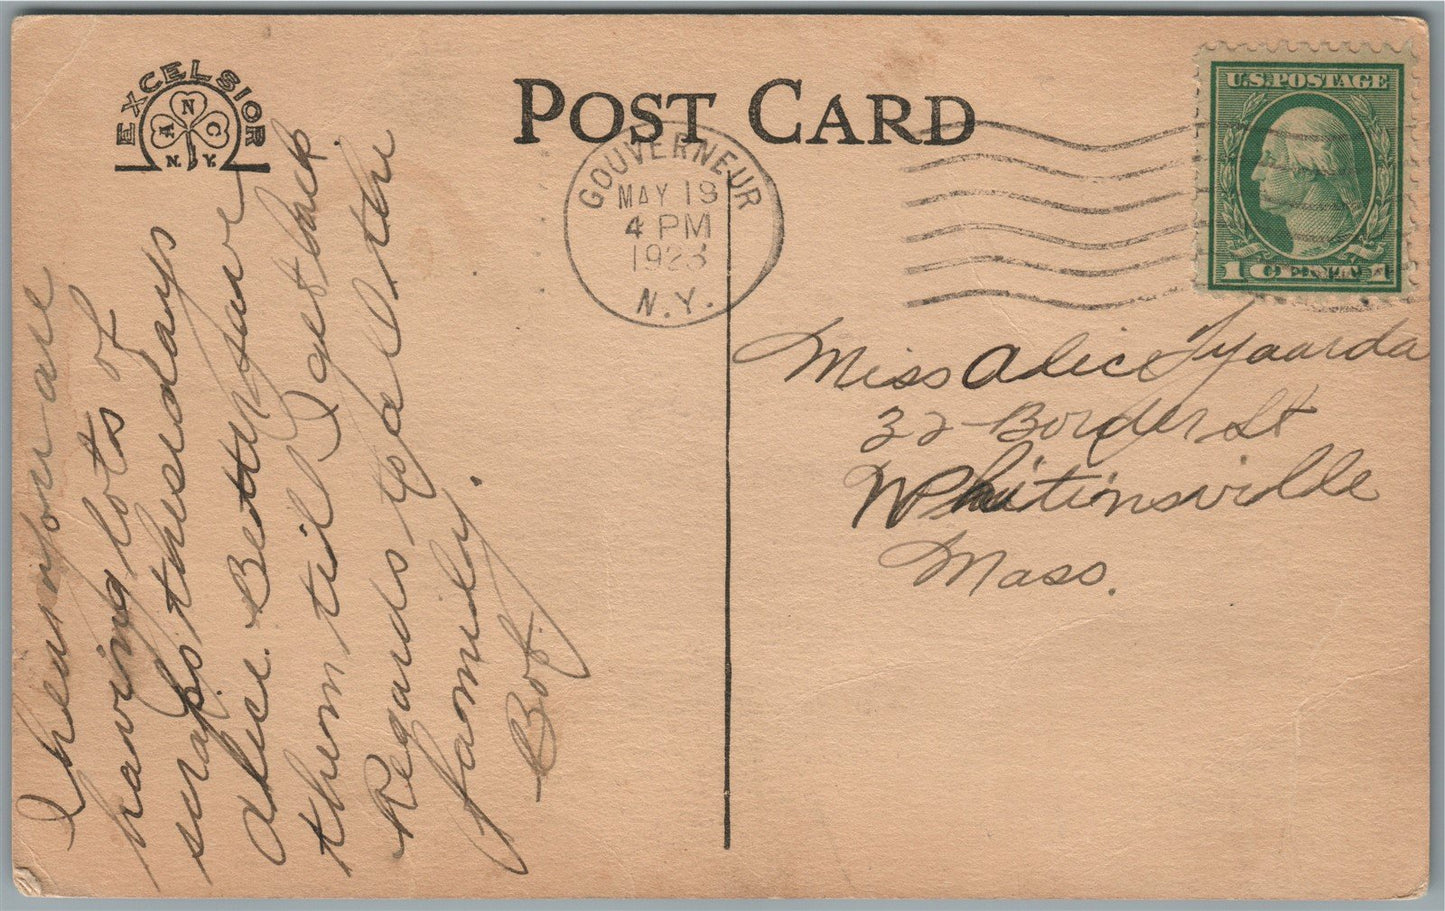 EXCELSIOR
A N C
N. Y.
POST CARD
GOUVERNEUR
MAY 19
4 PM
1923
N.Y.
U.S. POSTAGE
1 CENT 1
I hear you are
having lots of
scraps thesedays
Alice. Better save
them til I get back.
Regards to all the
family.
Bob.
Miss Alice
32 Border St
Whitinsville
Mass.